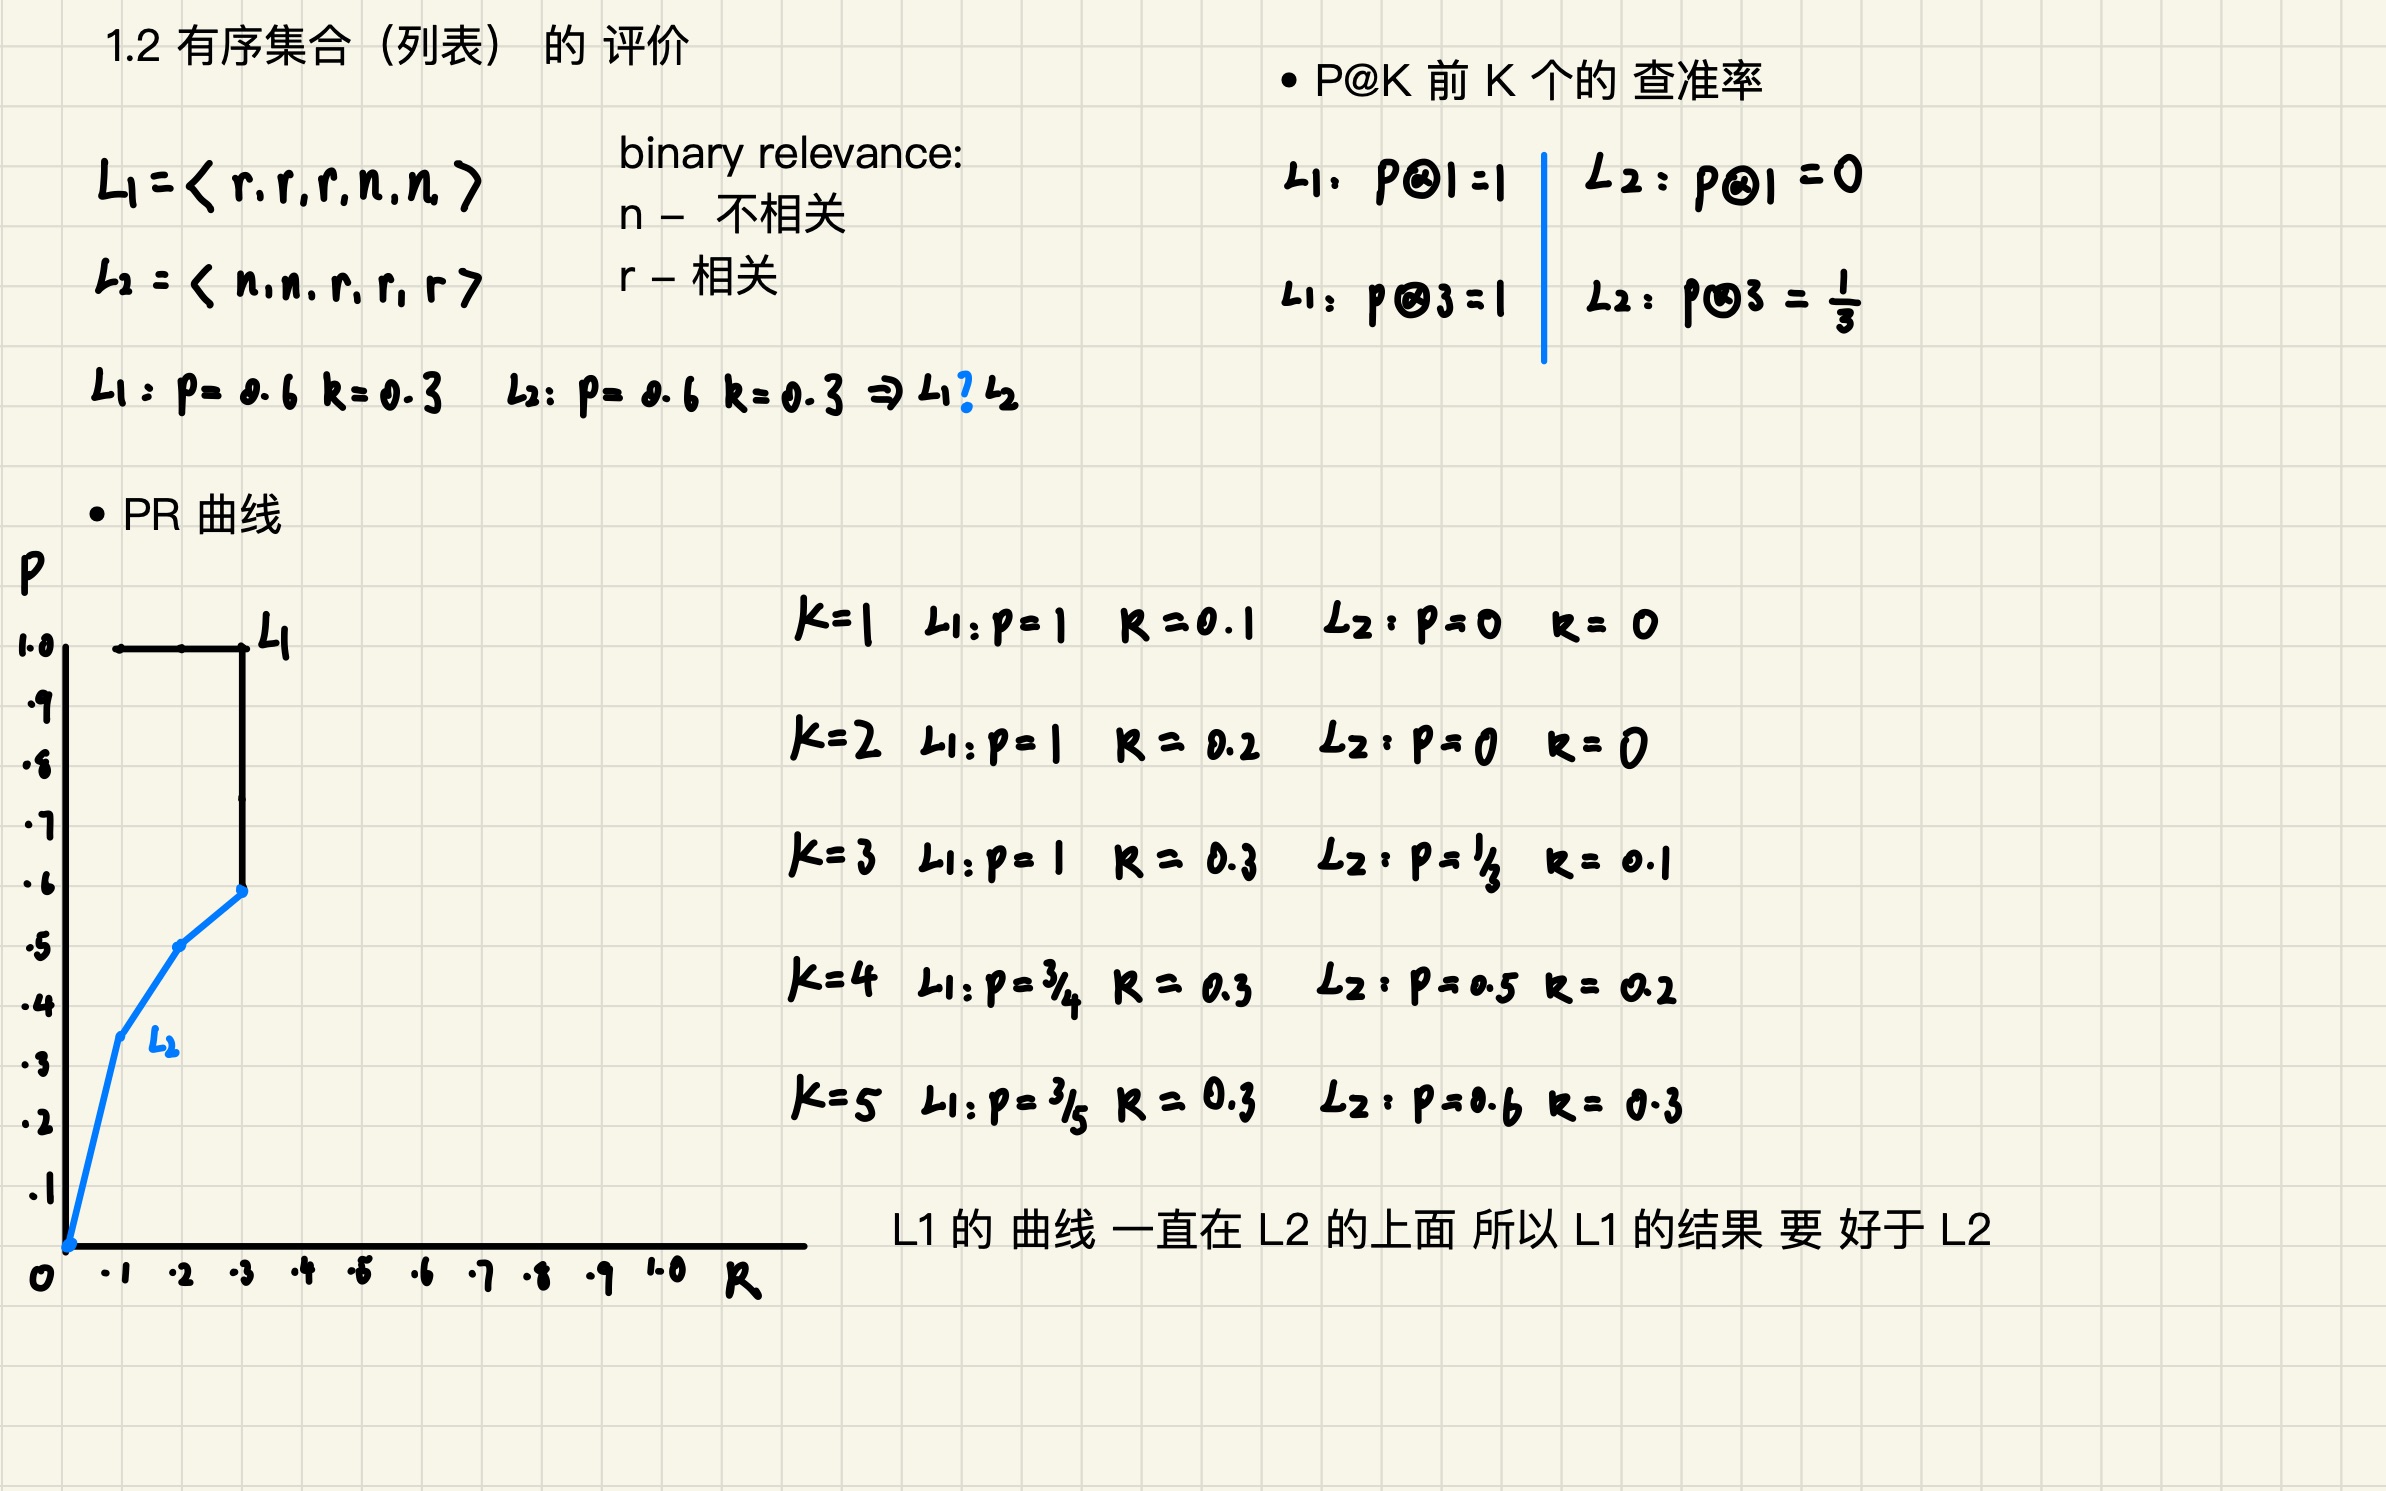 1.2 有序集合（列表） 的 评价
L1 = < r, r, r, n, n, >
L2 = < n, n, r, r, r >
binary relevance:
n – 不相关
r – 相关
L1: P = 0.6 R = 0.3 L2: P = 0.6 R = 0.3 ⇒ L1 ? L2
• P@K 前 K 个的 查准率
L1: P@1 = 1 L2: P@1 = 0
L1: P@3 = 1 L2: P@3 = 1/3
• PR 曲线
P
1.0
.9
.8
.7
.6
.5
.4
.3
.2
.1
L1
L2
0 .1 .2 .3 .4 .5 .6 .7 .8 .9 1.0 R
K=1 L1: P=1 R=0.1 L2: P=0 R=0
K=2 L1: P=1 R=0.2 L2: P=0 R=0
K=3 L1: P=1 R=0.3 L2: P=1/3 R=0.1
K=4 L1: P=3/4 R=0.3 L2: P=0.5 R=0.2
K=5 L1: P=3/5 R=0.3 L2: P=0.6 R=0.3
L1 的 曲线 一直在 L2 的上面 所以 L1 的结果 要 好于 L2